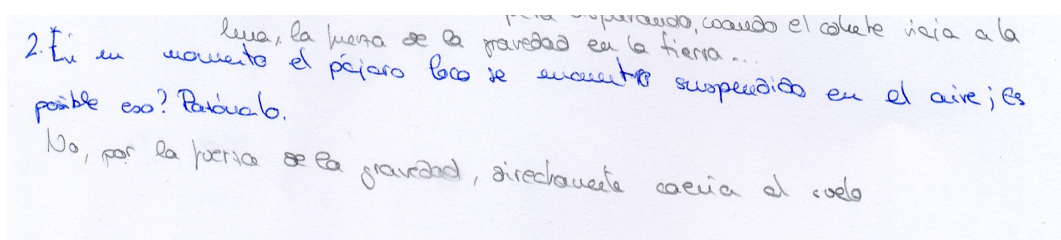 disparando, cuando el cohete viaja a la
luna, la fuerza de la gravedad en la tierra...
2. En un momento el pájaro loco se encuentra suspendido en el aire; es
posible eso? Razónalo.
No, por la fuerza de la gravedad, directamente caería al suelo